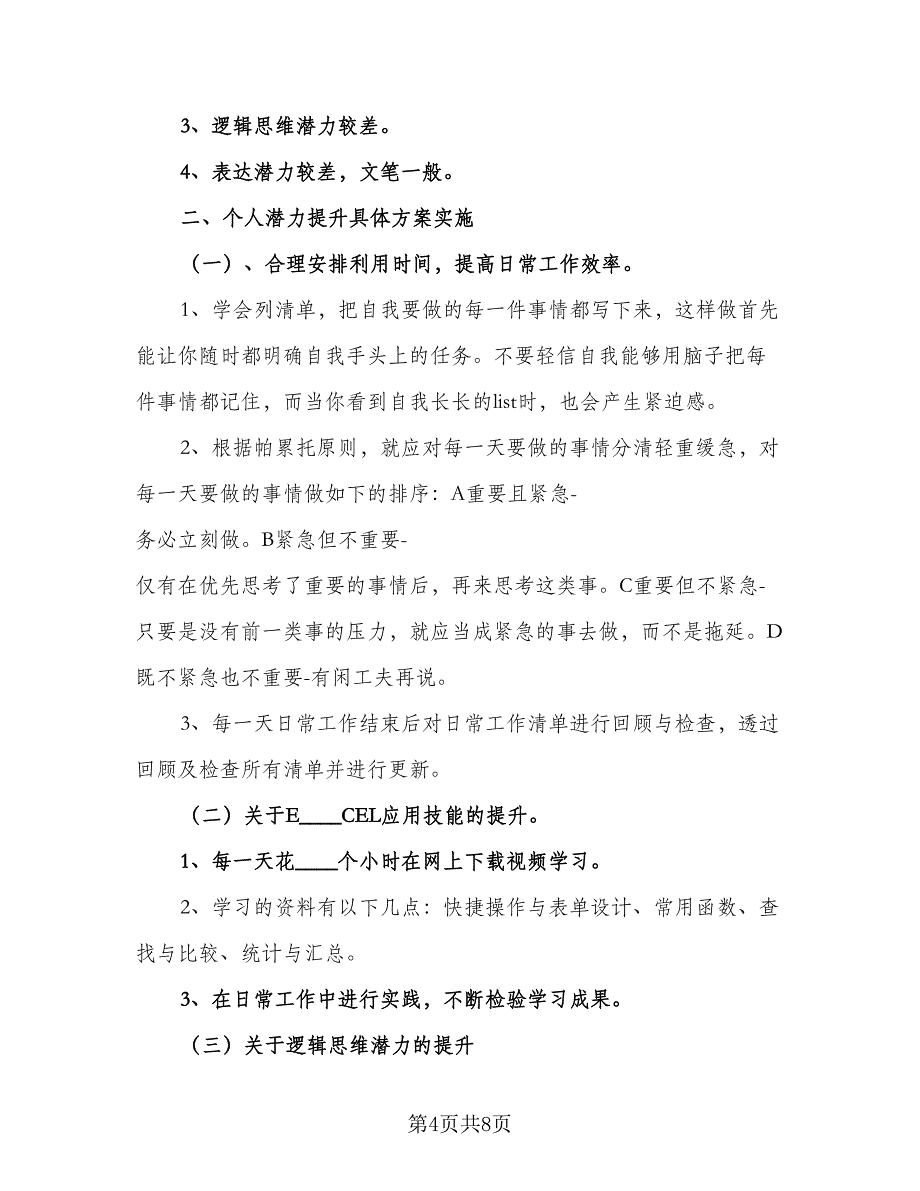 3、逻辑思维潜力较差。
4、表达潜力较差，文笔一般。
二、个人潜力提升具体方案实施
（一）、合理安排利用时间，提高日常工作效率。
1、学会列清单，把自我要做的每一件事情都写下来，这样做首先
能让你随时都明确自我手头上的任务。不要轻信自我能够用脑子把每
件事情都记住，而当你看到自我长长的list时，也会产生紧迫感。
2、根据帕累托原则，就应对每一天要做的事情分清轻重缓急，对
每一天要做的事情做如下的排序：A重要且紧急-
务必立刻做。B紧急但不重要-
仅有在优先思考了重要的事情后，再来思考这类事。C重要但不紧急-
只要是没有前一类事的压力，就应当成紧急的事去做，而不是拖延。D
既不紧急也不重要-有闲工夫再说。
3、每一天日常工作结束后对日常工作清单进行回顾与检查，透过
回顾及检查所有清单并进行更新。
（二）关于E____CEL应用技能的提升。
1、每一天花____个小时在网上下载视频学习。
2、学习的资料有以下几点：快捷操作与表单设计、常用函数、查
找与比较、统计与汇总。
3、在日常工作中进行实践，不断检验学习成果。
（三）关于逻辑思维潜力的提升
第4页共8页